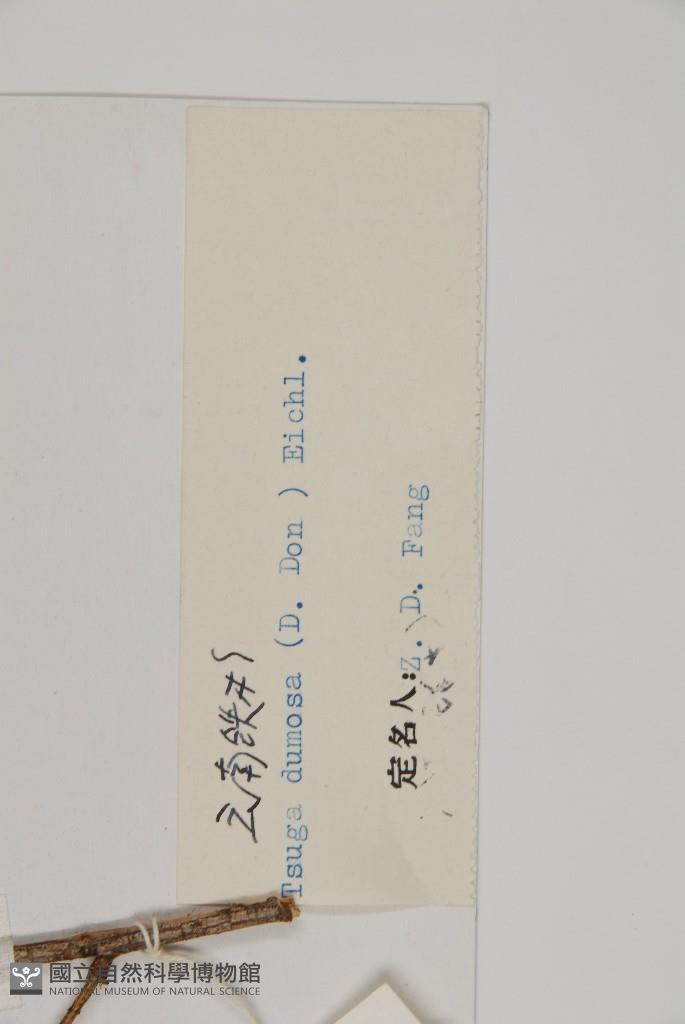 云南铁杉
Tsuga dumosa (D. Don ) Eichl.
定名人:Z. D. Fang
國立自然科學博物館
NATIONAL MUSEUM OF NATURAL SCIENCE